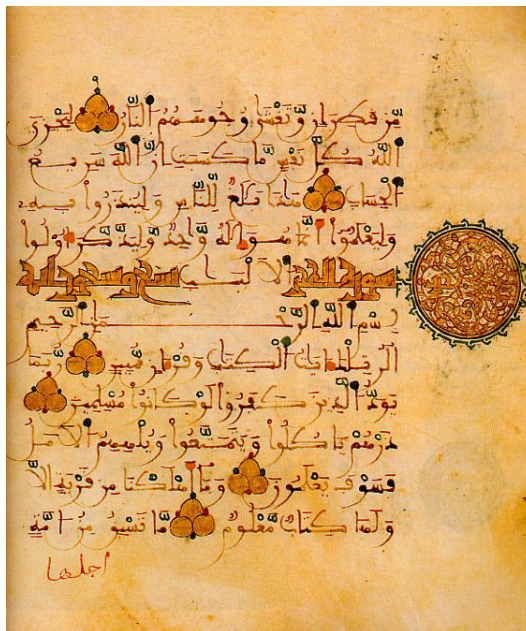 مِّن قَطِرَانٍ وَّتَغْشَىٰ وُجُوهَهُمُ النَّارُ لِيَجْزِيَ
اللَّهُ كُلَّ نَفْسٍ مَّا كَسَبَتْ إِنَّ اللَّهَ سَرِيعُ
الْحِسَابِ هَٰذَا بَلَٰغٌ لِّلنَّاسِ وَلِيُنذَرُوا بِهِ
وَلِيَعْلَمُوا أَنَّمَا هُوَ إِلَٰهٌ وَّاحِدٌ وَّلِيَذَّكَّرَ أُولُوا
سورة الحجر الْأَلْبَٰبِ تسع وتسعون اية
بِسْمِ اللَّهِ الرَّحْمَٰنِ الرَّحِيمِ
الر تِلْكَ ءَايَٰتُ الْكِتَٰبِ وَقُرْءَانٍ مُّبِينٍ رُّبَمَا
يَوَدُّ الَّذِينَ كَفَرُوا لَوْ كَانُوا مُسْلِمِينَ
ذَرْهُمْ يَأْكُلُوا وَيَتَمَتَّعُوا وَيُلْهِهِمُ الْأَمَلُ
فَسَوْفَ يَعْلَمُونَ وَمَا أَهْلَكْنَا مِن قَرْيَةٍ إِلَّا
وَلَهَا كِتَابٌ مَّعْلُومٌ مَّا تَسْبِقُ مِنْ أُمَّةٍ
اجلها